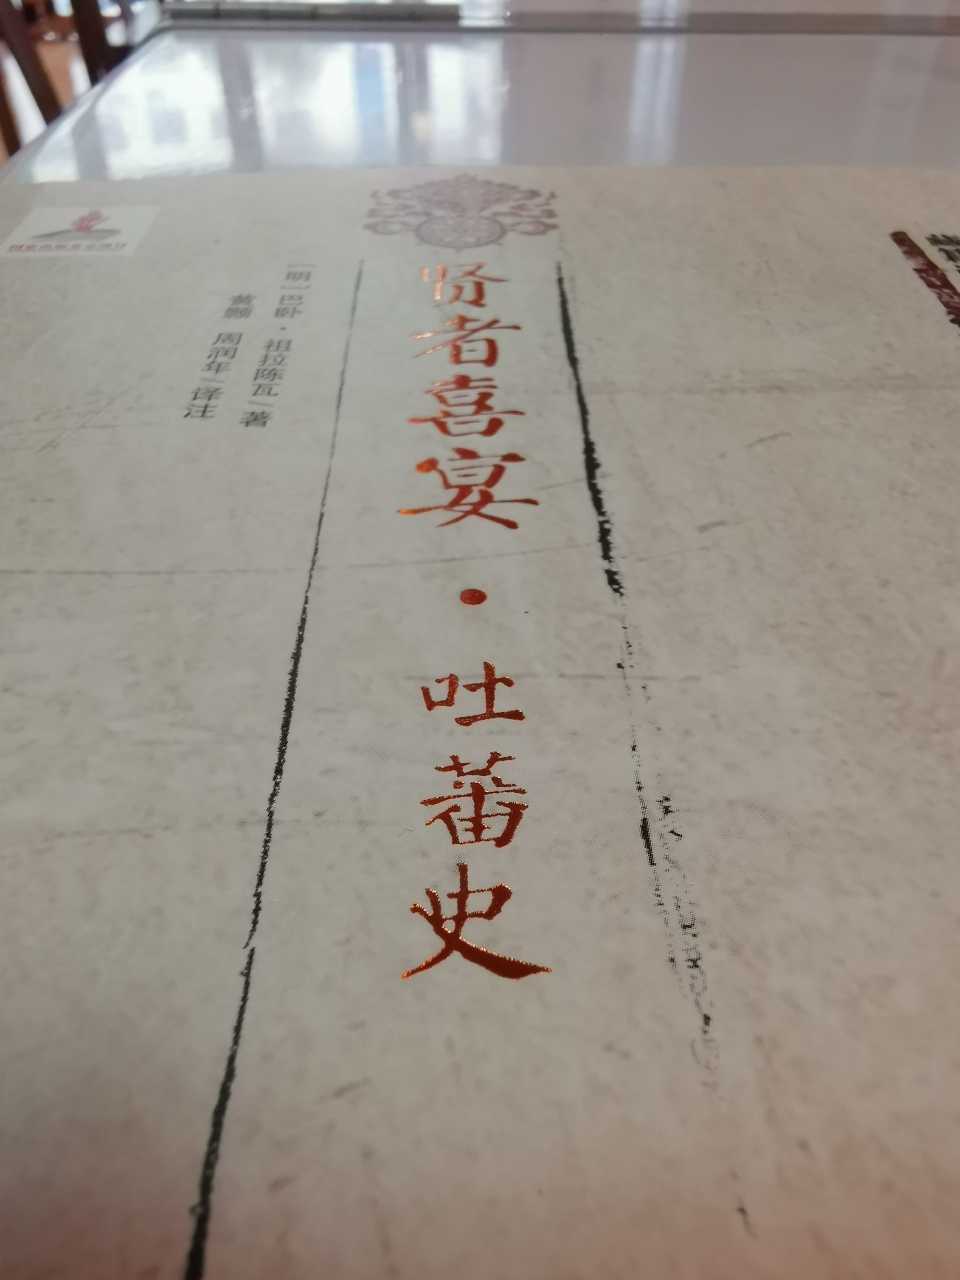 贤者喜宴·吐蕃史
[明]巴卧·祖拉陈瓦/著
黄颢 周润年/译注